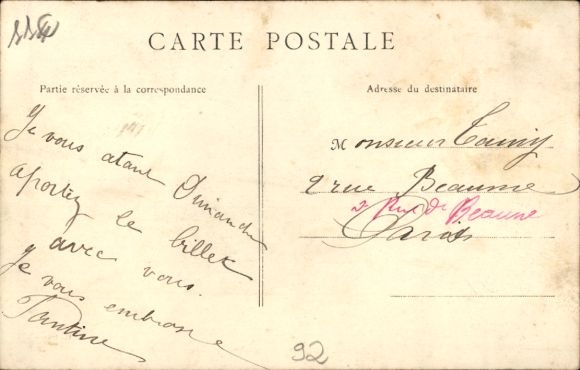 CARTE POSTALE
Partie réservée à la correspondance
Adresse du destinataire
Je vous atant Dimanche
aportez le billet
avec vous.
je vous embrasse
Tantine
Monsieur
2 rue Beaume
2 Rue de Beaune
Paris
92